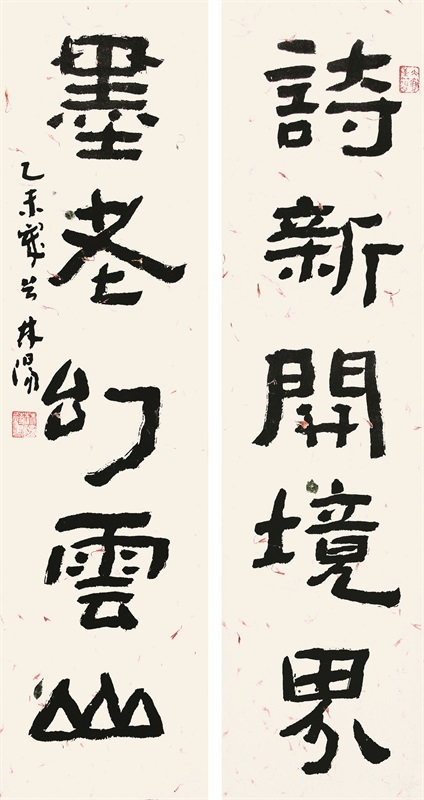 詩新開境界
墨老幻雲山
乙未 林